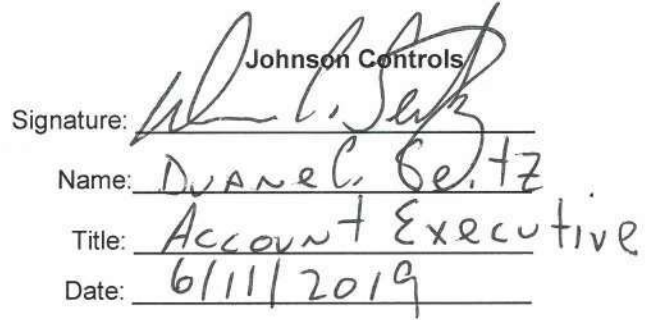 Johnson Controls
Signature: Duane C. Seitz
Name: Duane C. Seitz
Title: Account Executive
Date: 6/11/2019